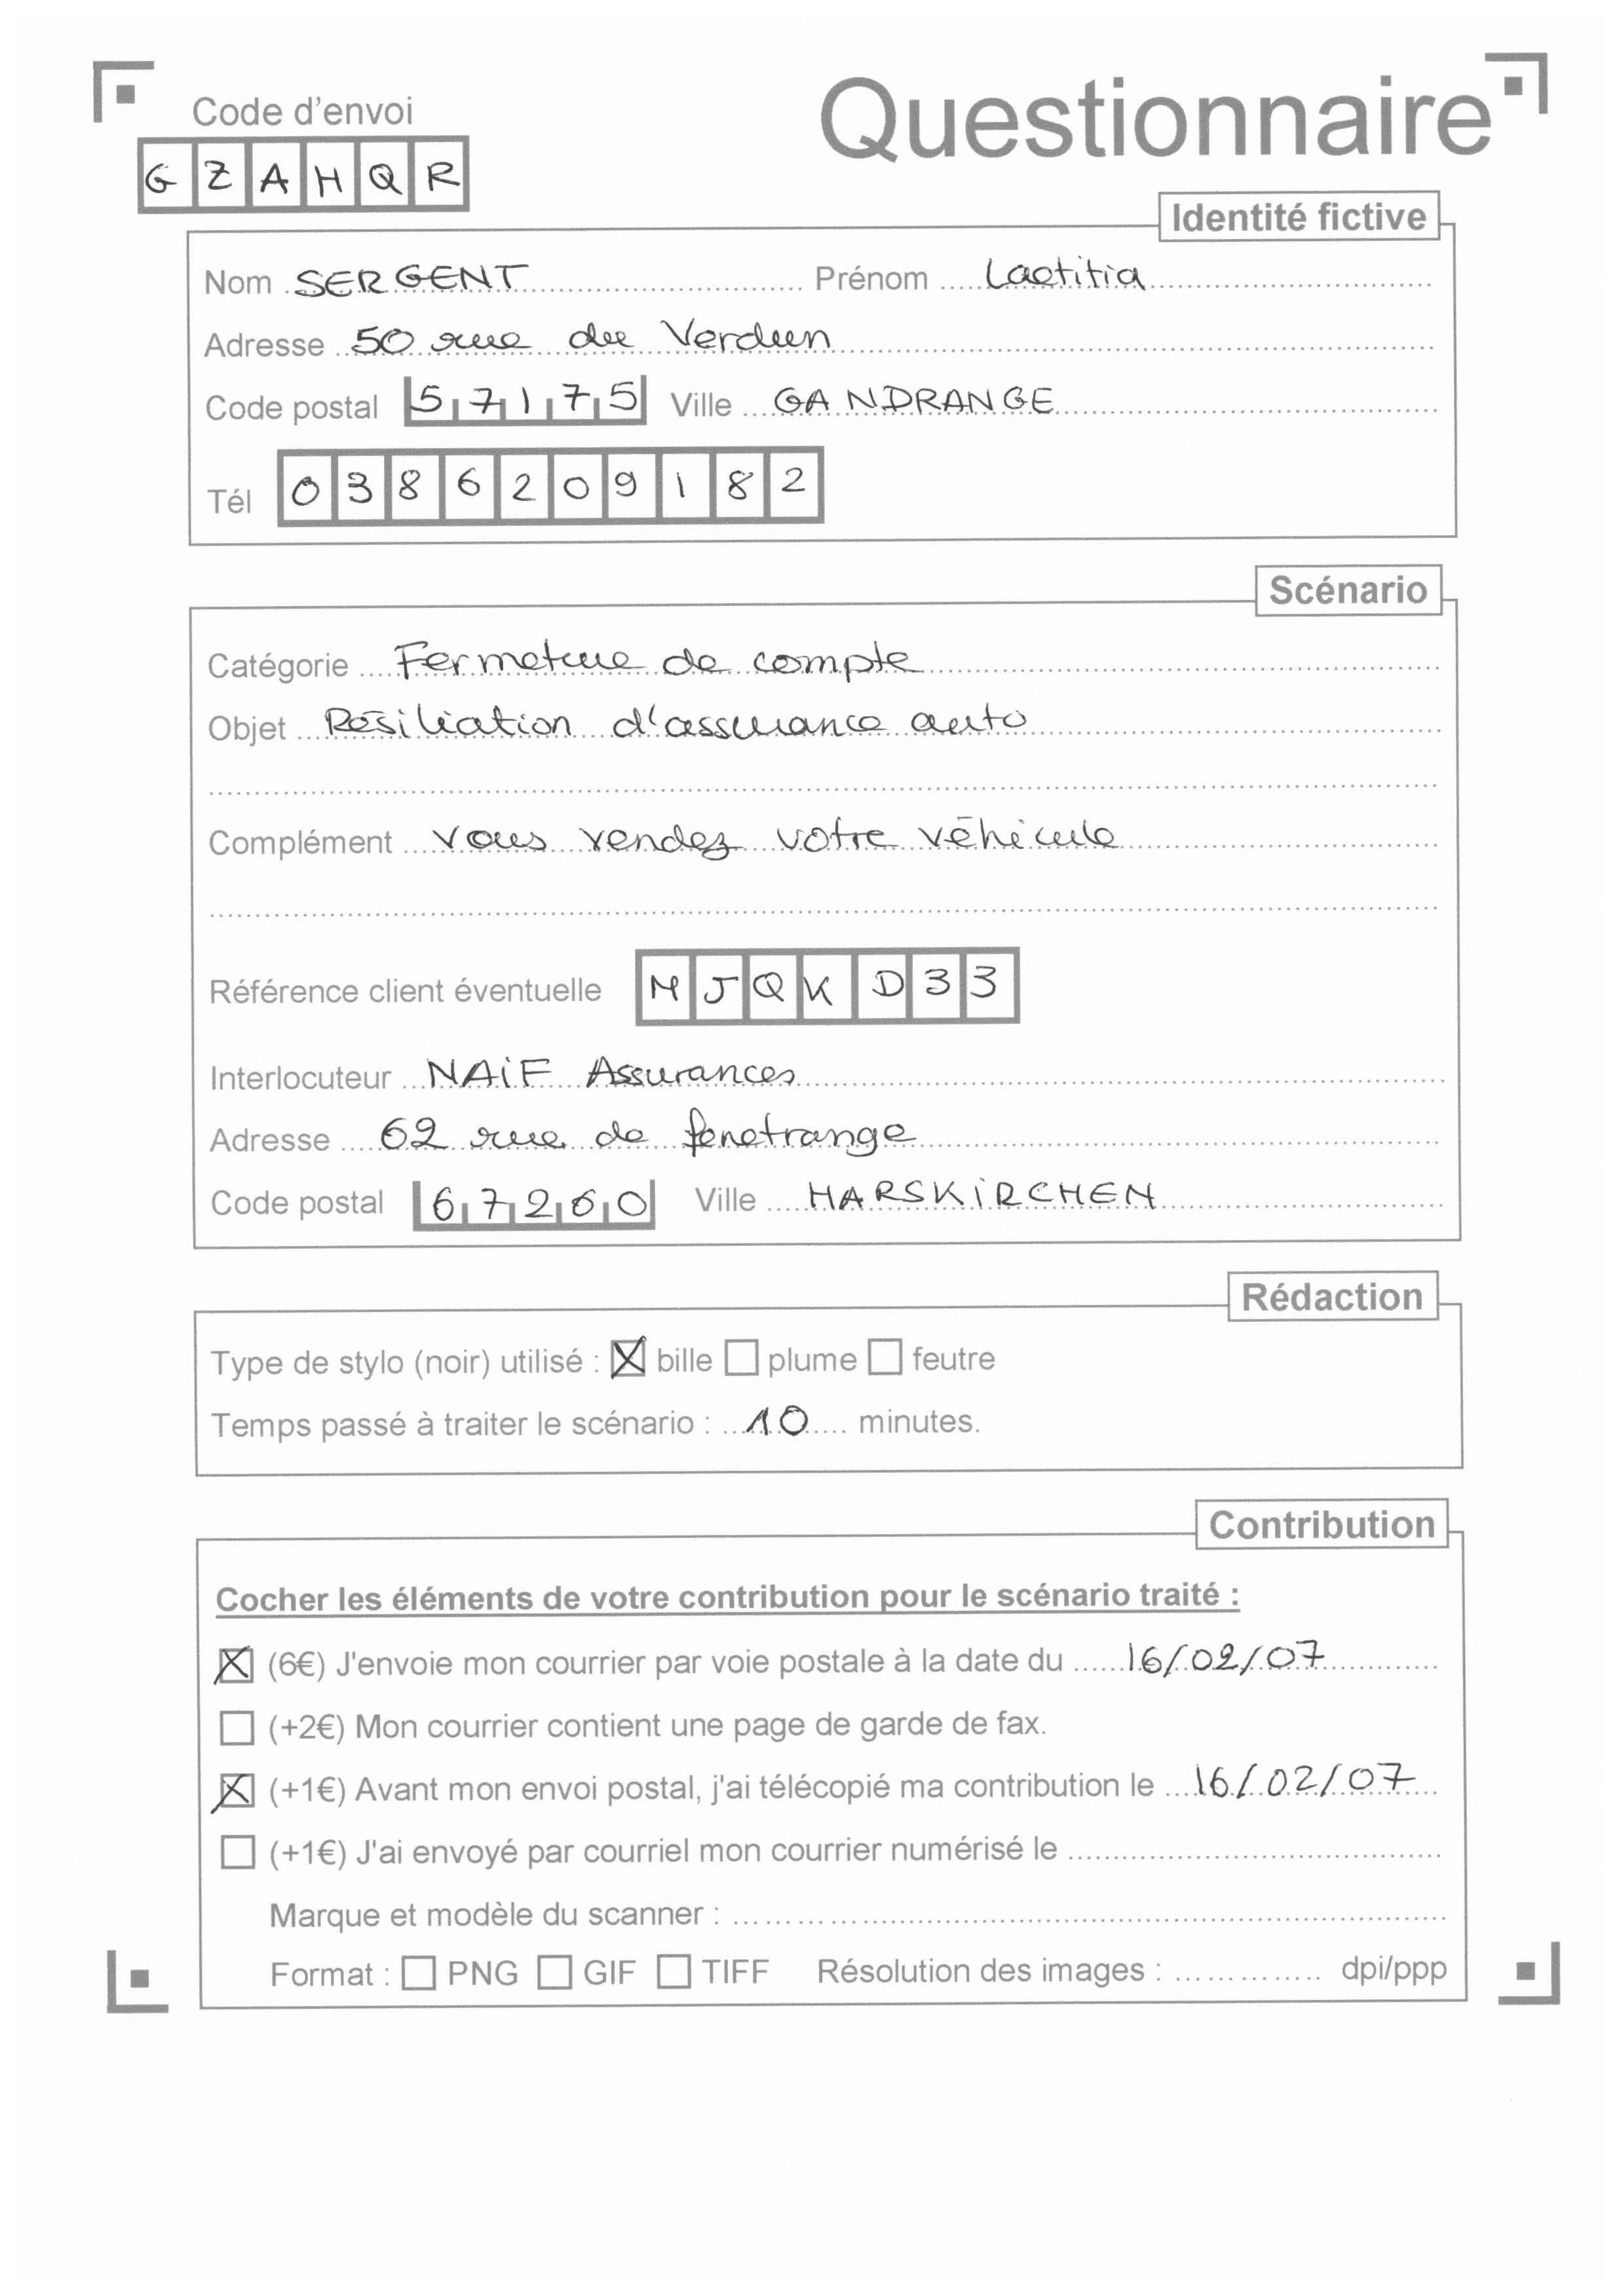 Code d'envoi
Questionnaire
GZAHQR
Identité fictive
Nom SERGENT Prénom Laetitia
Adresse 50 rue du Verdun
Code postal 57175 Ville GANDRANGE
Tél 0386209182
Scénario
Catégorie Fermeture de compte
Objet Résiliation d'assurance auto
Complément vous vendez votre véhicule
Référence client éventuelle MJQKD33
Interlocuteur NAiF Assurances
Adresse 62 rue de fenetrange
Code postal 67260 Ville HARSKiRCHEN
Rédaction
Type de stylo (noir) utilisé : ☒ bille ☐ plume ☐ feutre
Temps passé à traiter le scénario : 10 minutes.
Contribution
Cocher les éléments de votre contribution pour le scénario traité :
☒ (6€) J'envoie mon courrier par voie postale à la date du 16/02/07
☐ (+2€) Mon courrier contient une page de garde de fax.
☒ (+1€) Avant mon envoi postal, j'ai télécopié ma contribution le 16/02/07
☐ (+1€) J'ai envoyé par courriel mon courrier numérisé le
Marque et modèle du scanner :
Format : ☐ PNG ☐ GIF ☐ TIFF Résolution des images : dpi/ppp